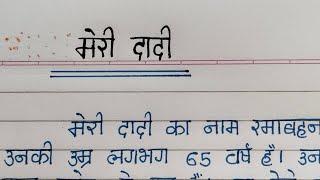 मेरी दादी
मेरी दादी का नाम रमाबहन
उनकी उम्र लगभग 65 वर्ष है। उन